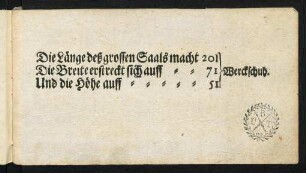 Die Länge deß grossen Saals macht 201
Die Breite erstreckt sich auff " " 71 } Werckschuh.
Und die Höhe auff " " " " " 51